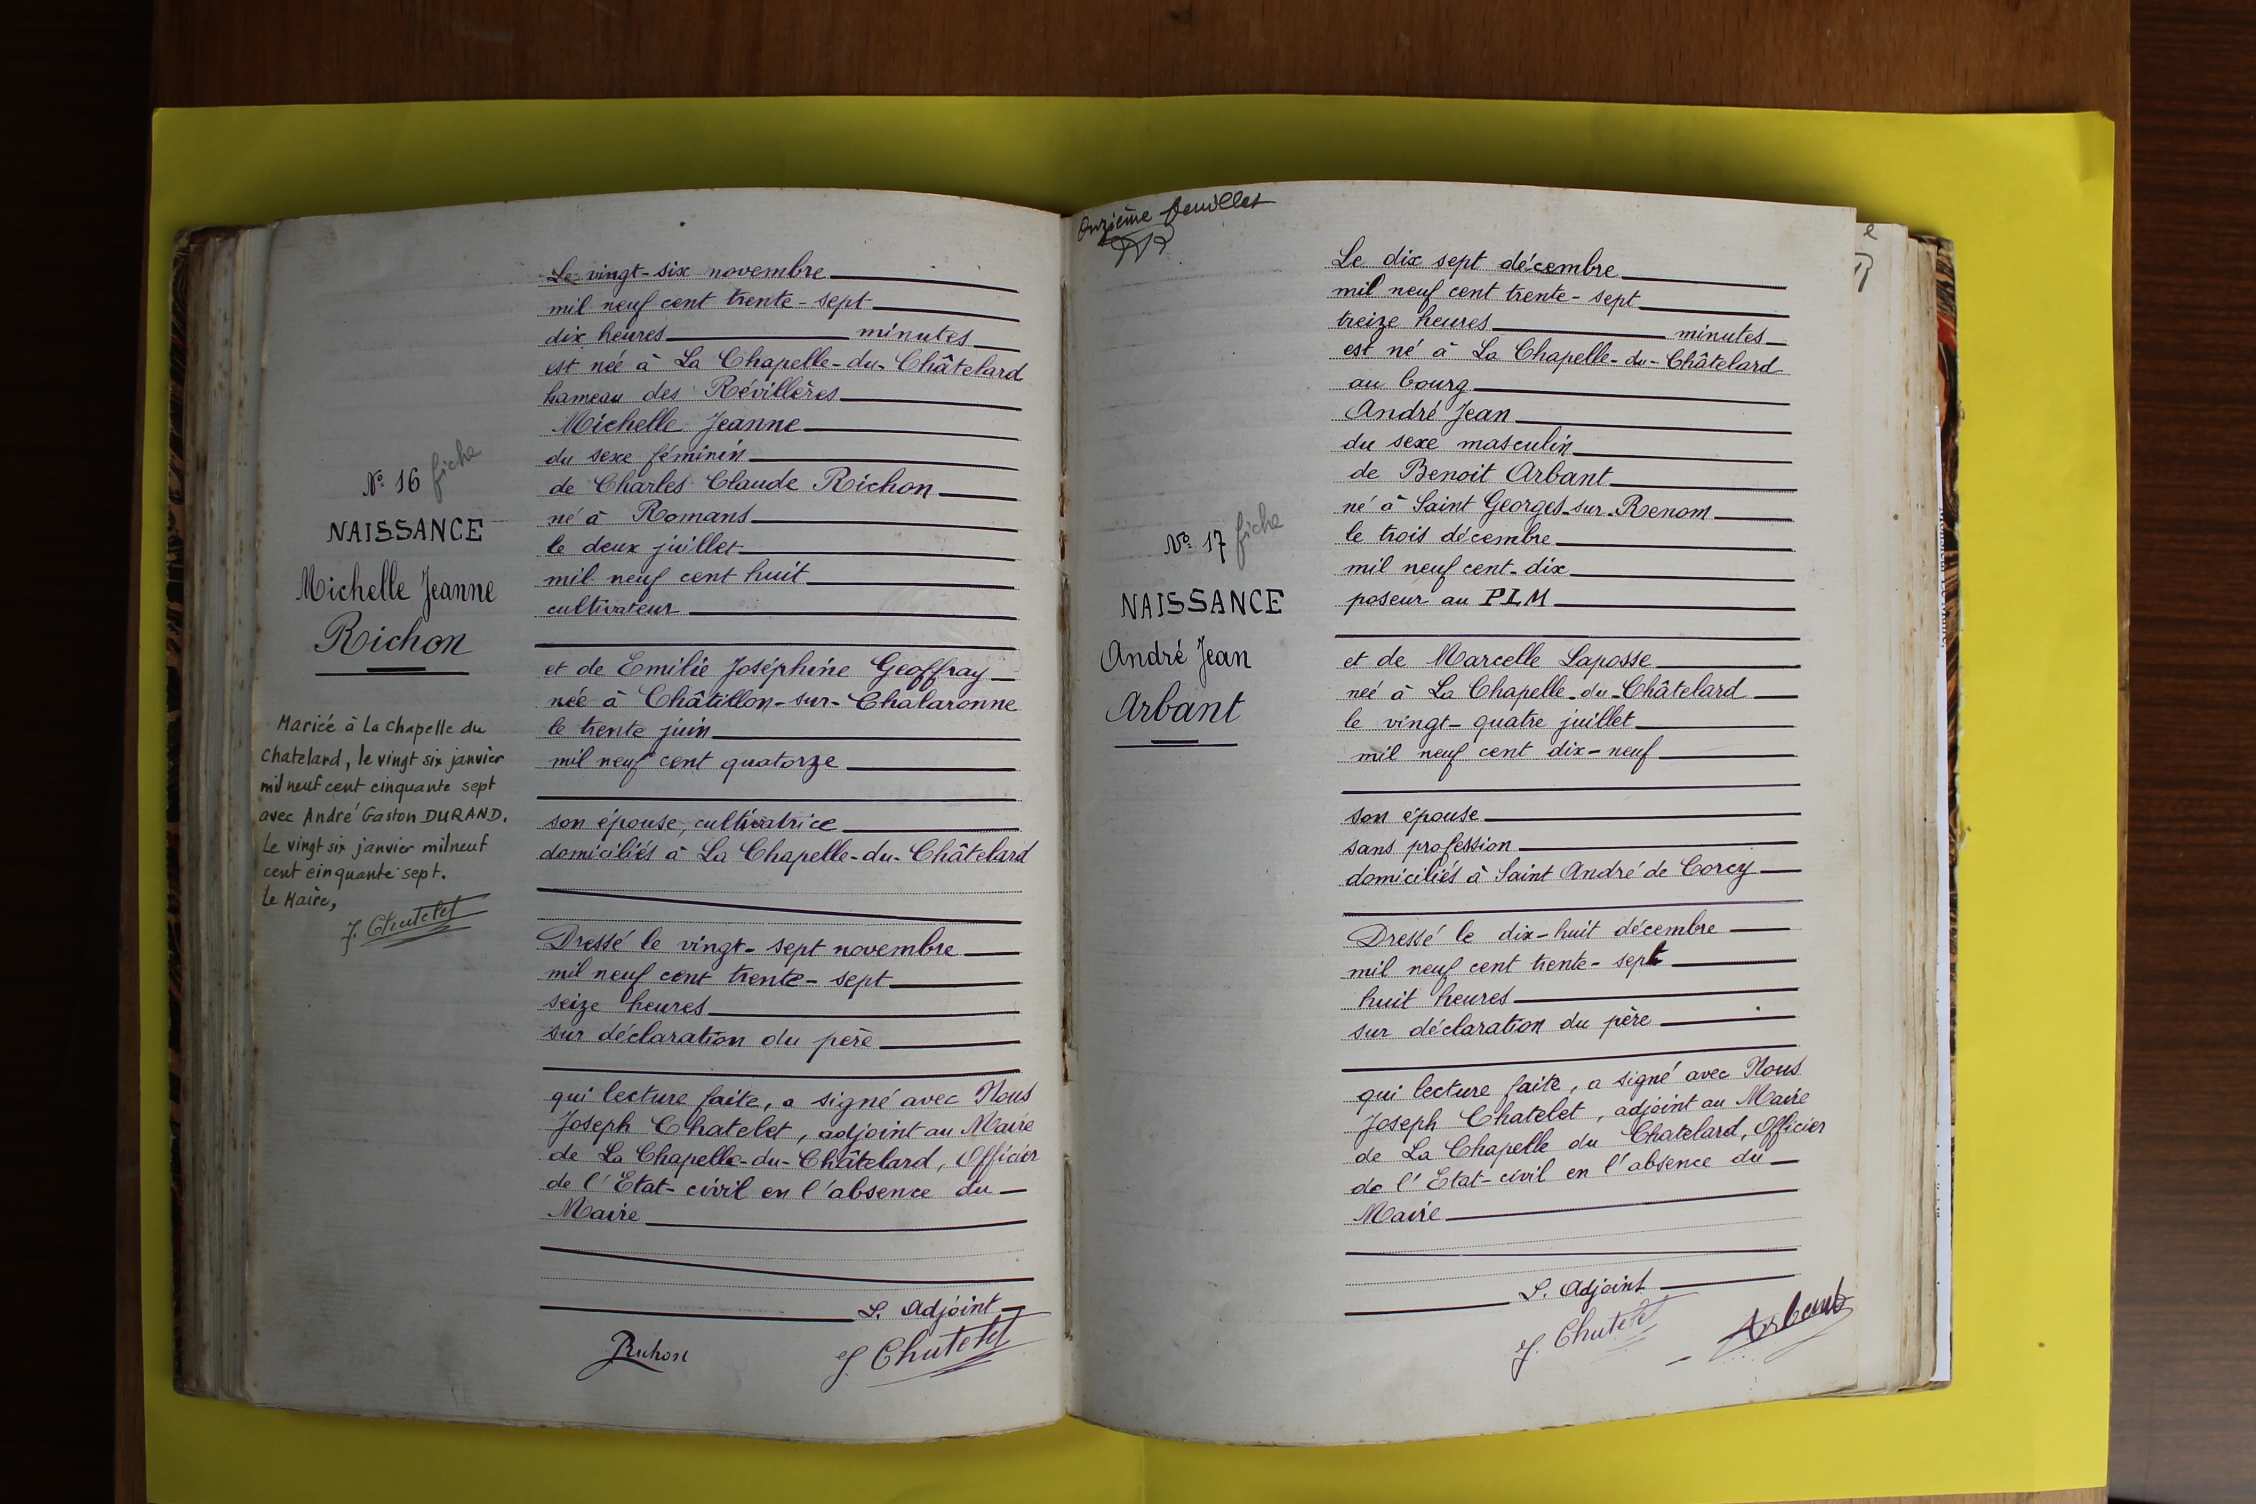 N° 16 fiche
NAISSANCE
Michelle Jeanne
Richon
Mariée à La Chapelle du
Chatelard, le vingt six janvier
mil neuf cent cinquante sept
avec André Gaston DURAND.
Le vingt six janvier mil neuf
cent cinquante sept.
Le Maire,
J. Chatelet
Le vingt-six novembre
mil neuf cent trente-sept
dix heures minutes
est née à La Chapelle-du-Châtelard
hameau des Révillères
Michelle Jeanne
du sexe féminin
de Charles Claude Richon
né à Romans
le deux juillet
mil neuf cent huit
cultivateur
et de Emilie Joséphine Geoffray
née à Châtillon-sur-Chalaronne
le trente juin
mil neuf cent quatorze
son épouse, cultivatrice
domiciliés à La Chapelle-du-Châtelard
Dressé le vingt-sept novembre
mil neuf cent trente-sept
seize heures
sur déclaration du père
qui lecture faite, a signé avec Nous
Joseph Chatelet, adjoint au Maire
de La Chapelle-du-Châtelard, Officier
de l'Etat-civil en l'absence du
Maire
L. Adjoint
Richon J. Chatelet
Onzième feuillet
N° 17 fiche
NAISSANCE
André Jean
Arbant
Le dix sept décembre
mil neuf cent trente-sept
treize heures minutes
est né à La Chapelle-du-Châtelard
au bourg
André Jean
du sexe masculin
de Benoit Arbant
né à Saint Georges-sur-Renom
le trois décembre
mil neuf cent-dix
poseur au PLM
et de Marcelle Laposse
neé à La Chapelle-du-Châtelard
le vingt-quatre juillet
mil neuf cent dix-neuf
son épouse
sans profession
domiciliés à Saint André de Corcy
Dressé le dix-huit décembre
mil neuf cent trente-sept
huit heures
sur déclaration du père
qui lecture faite, a signé avec Nous
Joseph Chatelet, adjoint au Maire
de La Chapelle du Chatelard, Officier
de l'Etat-civil en l'absence du
Maire
L. Adjoint
J. Chatelet Arbant